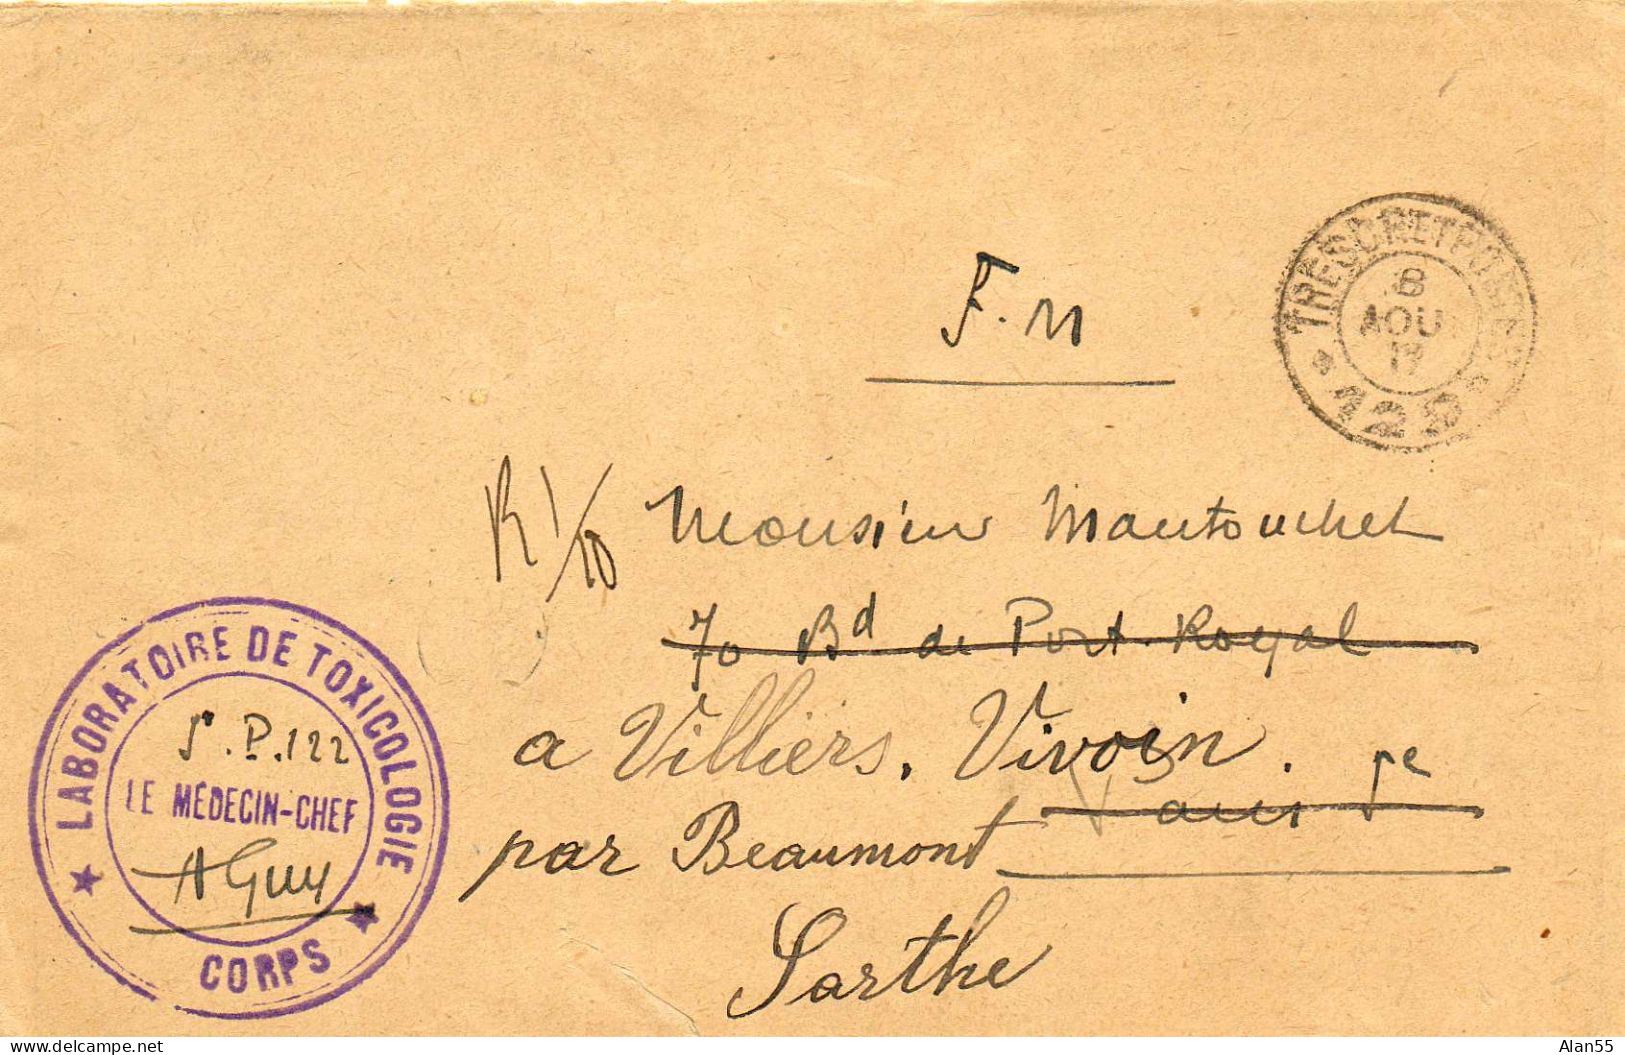 TRESOR ET POSTES
8
AOUT
17
* 122 *
F. M
R 1/10
Monsieur Mautouchet
70 Bd de Port-Royal
a Villiers. Vivoin.
Paris 5e
par Beaumont
Sarthe
LABORATOIRE DE TOXICOLOGIE
S.P. 122
LE MÉDECIN-CHEF
A Guy
★ CORPS ★
Alan55
www.delcampe.net